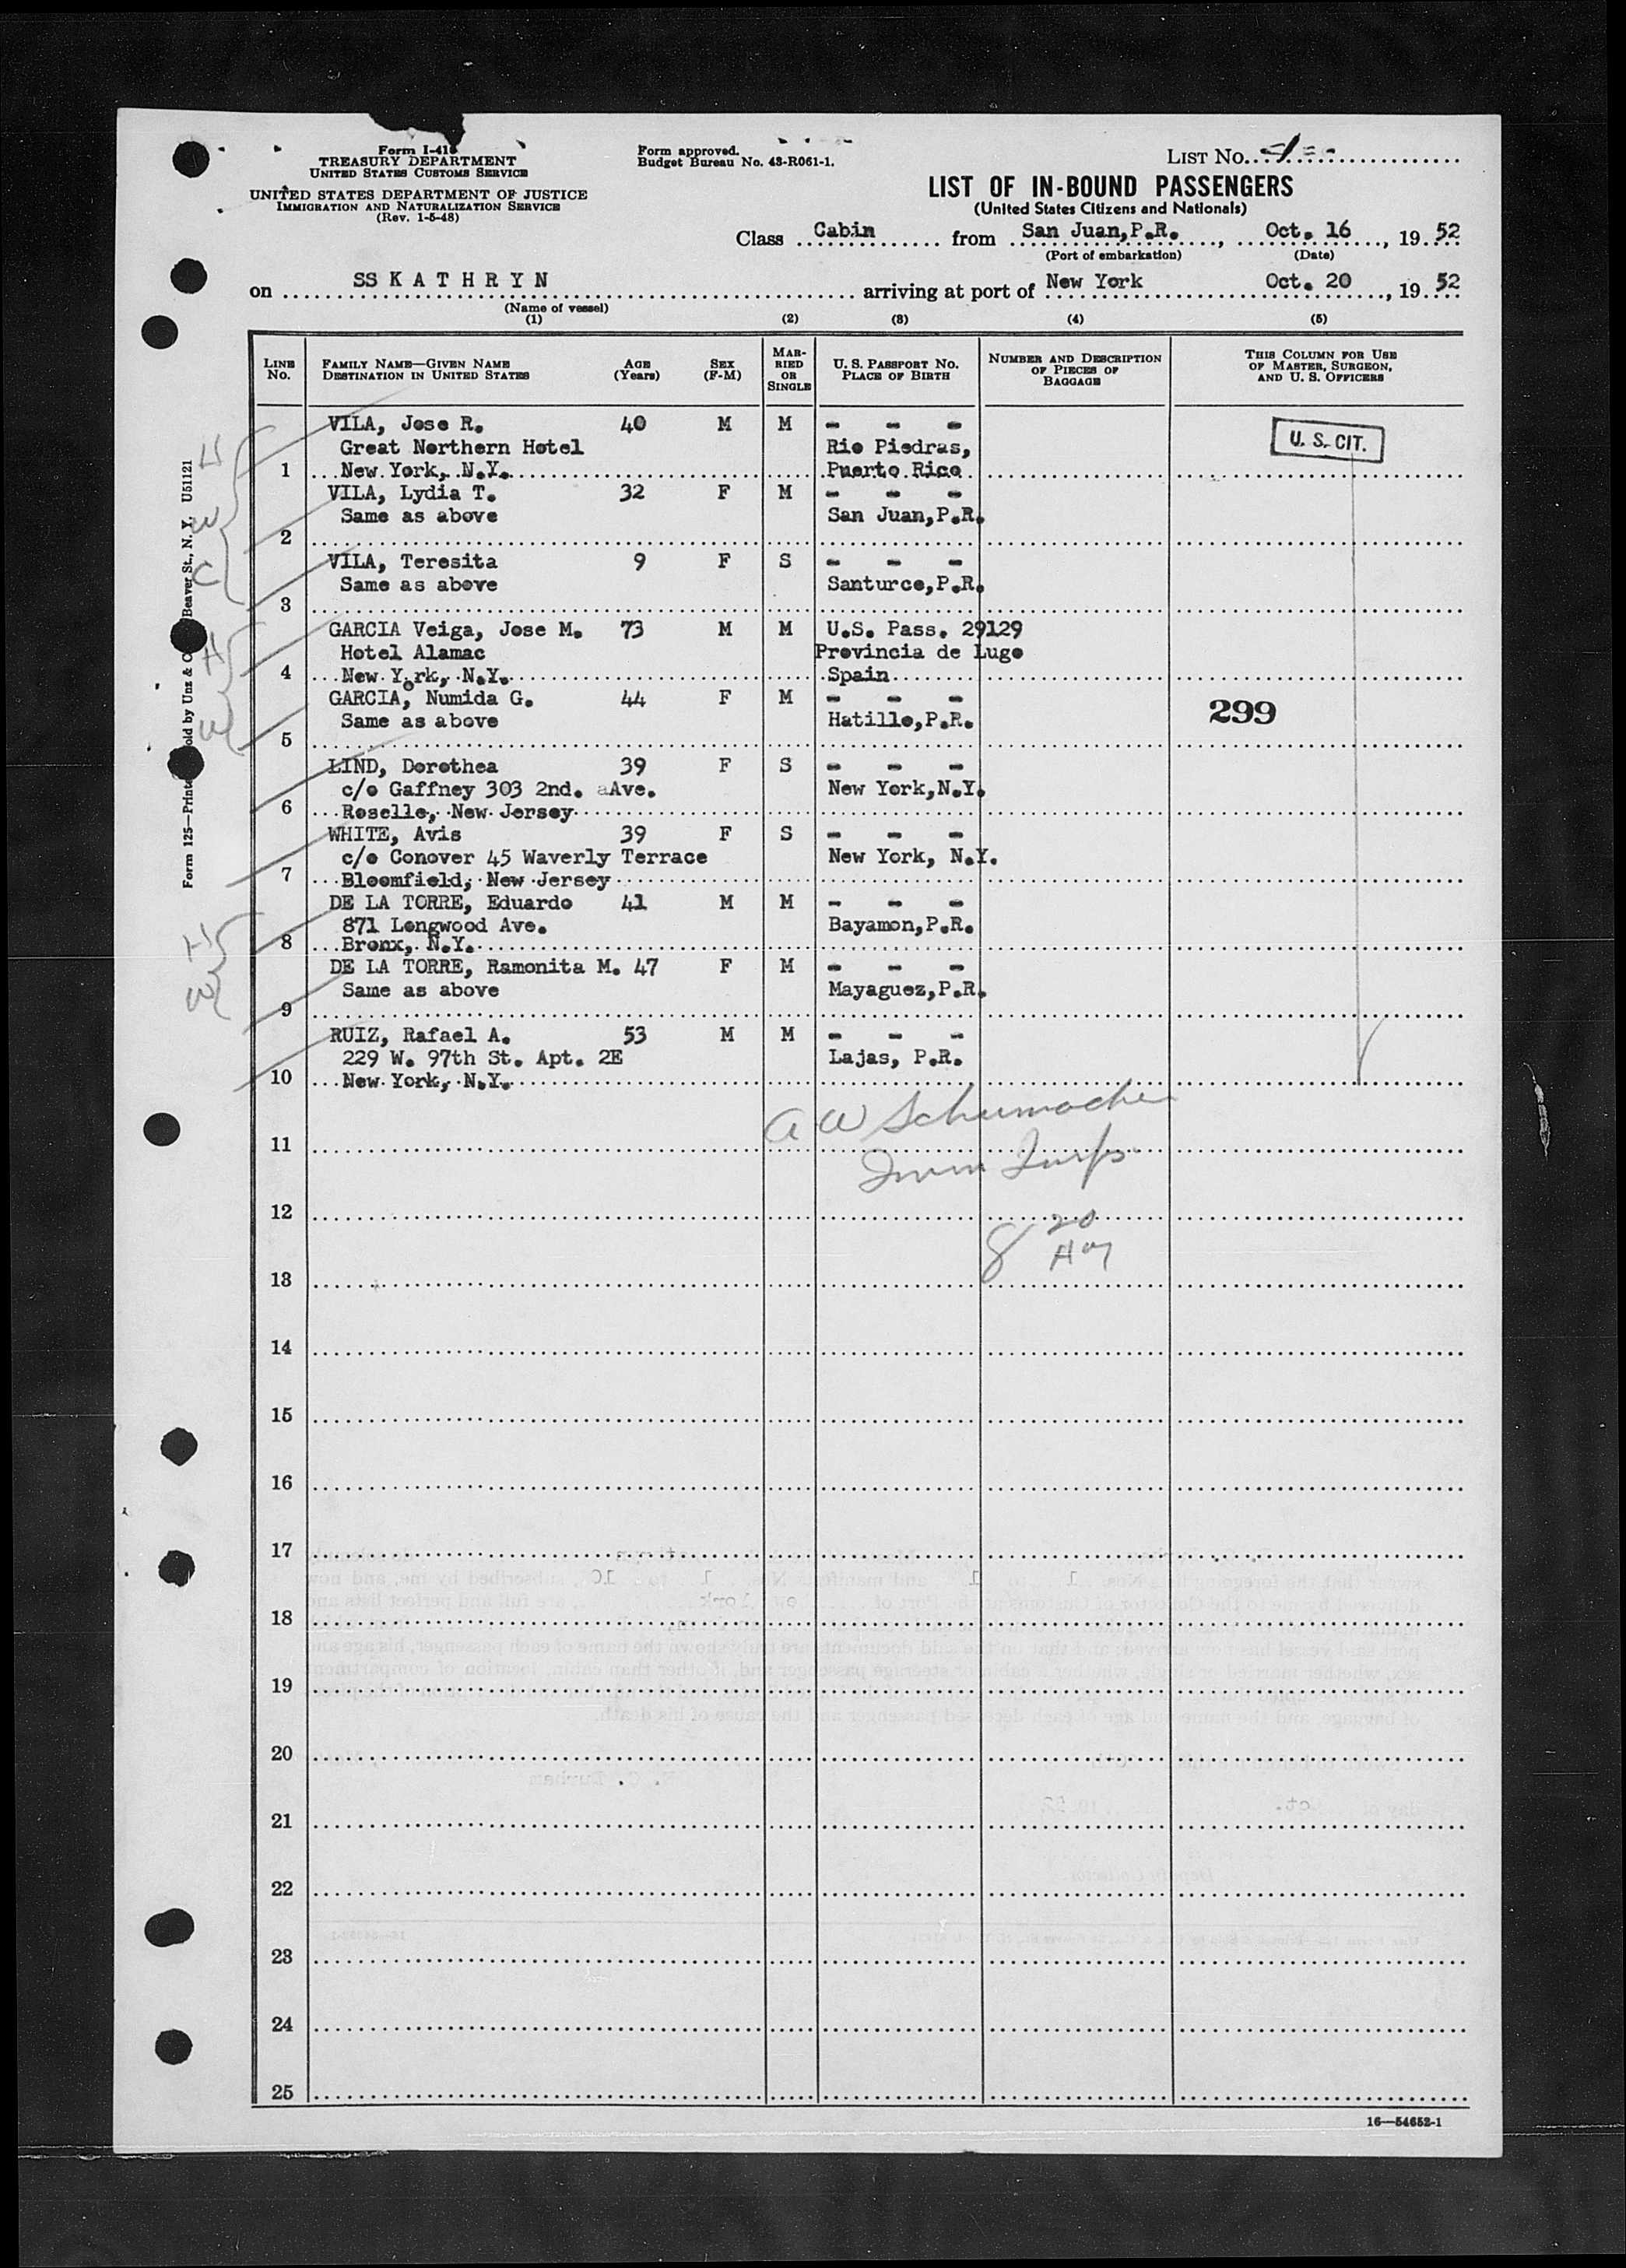 Form I-41
TREASURY DEPARTMENT
UNITED STATES CUSTOMS SERVICE
UNITED STATES DEPARTMENT OF JUSTICE
IMMIGRATION AND NATURALIZATION SERVICE
(Rev. 1-5-48)
Form approved.
Budget Bureau No. 43-R061-1.
LIST No.
LIST OF IN-BOUND PASSENGERS
(United States Citizens and Nationals)
Class Cabin from San Juan,P.R., Oct. 16, 19 52
(Port of embarkation) (Date)
on SS K A T H R Y N arriving at port of New York Oct. 20, 19 52
(Name of vessel)
(1) (2) (3) (4) (5)
LINE No. FAMILY NAME—GIVEN NAME DESTINATION IN UNITED STATES AGE (Years) SEX (F-M) MARRIED OR SINGLE U. S. PASSPORT No. PLACE OF BIRTH NUMBER AND DESCRIPTION OF PIECES OF BAGGAGE THIS COLUMN FOR USE OF MASTER, SURGEON, AND U. S. OFFICERS
VILA, Jose R. 40 M M - - -
Great Northern Hotel Rio Piedras, U. S. CIT.
1 New York, N.Y. Puerto Rico
VILA, Lydia T. 32 F M - - -
Same as above San Juan,P.R.
2
VILA, Teresita 9 F S - - -
Same as above Santurce,P.R.
3
GARCIA Veiga, Jose M. 73 M M U.S. Pass. 29129
Hotel Alamac Provincia de Lugo
4 New York, N.Y. Spain
GARCIA, Numida G. 44 F M - - - 299
Same as above Hatillo,P.R.
5
LIND, Dorothea 39 F S - - -
c/o Gaffney 303 2nd. aAve. New York,N.Y.
6 Roselle, New Jersey
WHITE, Avis 39 F S - - -
c/o Conover 45 Waverly Terrace New York, N.Y.
7 Bloomfield, New Jersey
DE LA TORRE, Eduardo 41 M M - - -
871 Longwood Ave. Bayamon,P.R.
8 Bronx, N.Y.
DE LA TORRE, Ramonita M. 47 F M - - -
Same as above Mayaguez,P.R.
9
RUIZ, Rafael A. 53 M M - - -
229 W. 97th St. Apt. 2E Lajas, P.R.
10 New York, N.Y.
A W Schumacher
11
Imm Insp
12
8 20
Am
13
14
15
16
17
18
19
20
21
22
23
24
25
16—54652-1
H
W
C
H
W
H
W
Form 125—Printed old by Unz & C Beaver St., N. Y. U51121